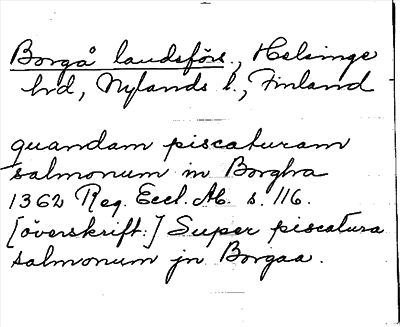 Borgå landsförs., Helsinge
hd, Nylands l., Finland
quandam piscaturam
salmonum in Borgha
1362 Reg. Eccl. Ab. s. 116.
[överskrift:] Super piscatura
salmonum jn Borgaa.